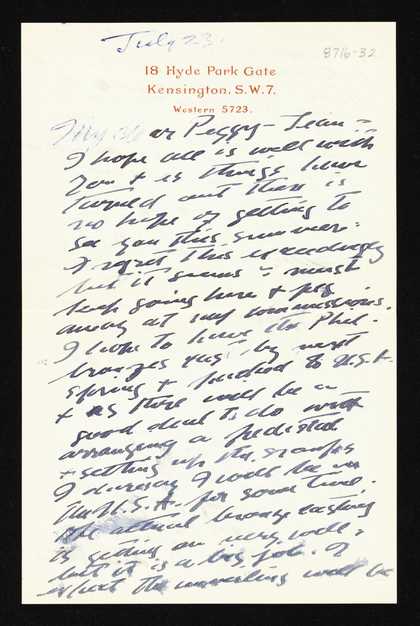 July 23.
8716-32
18 Hyde Park Gate
Kensington. S.W.7.
Western 5723.
My dear Peggy-Jean –
I hope all is well with
you & as things have
turned out there is
no hope of getting to
see you this summer.
I regret this exceedingly
but it seems I must
keep going here & peg
away at my commissions.
I hope to have the Phil.
bronzes by next
spring & to U.S.A.
& as there will be a
good deal to do with
arranging a pedestal
& setting up the
I I will be in
the U.S.A. for some time.
The actual bronze casting
is getting on very well,
but it is a big job. Of
what the unveiling will be